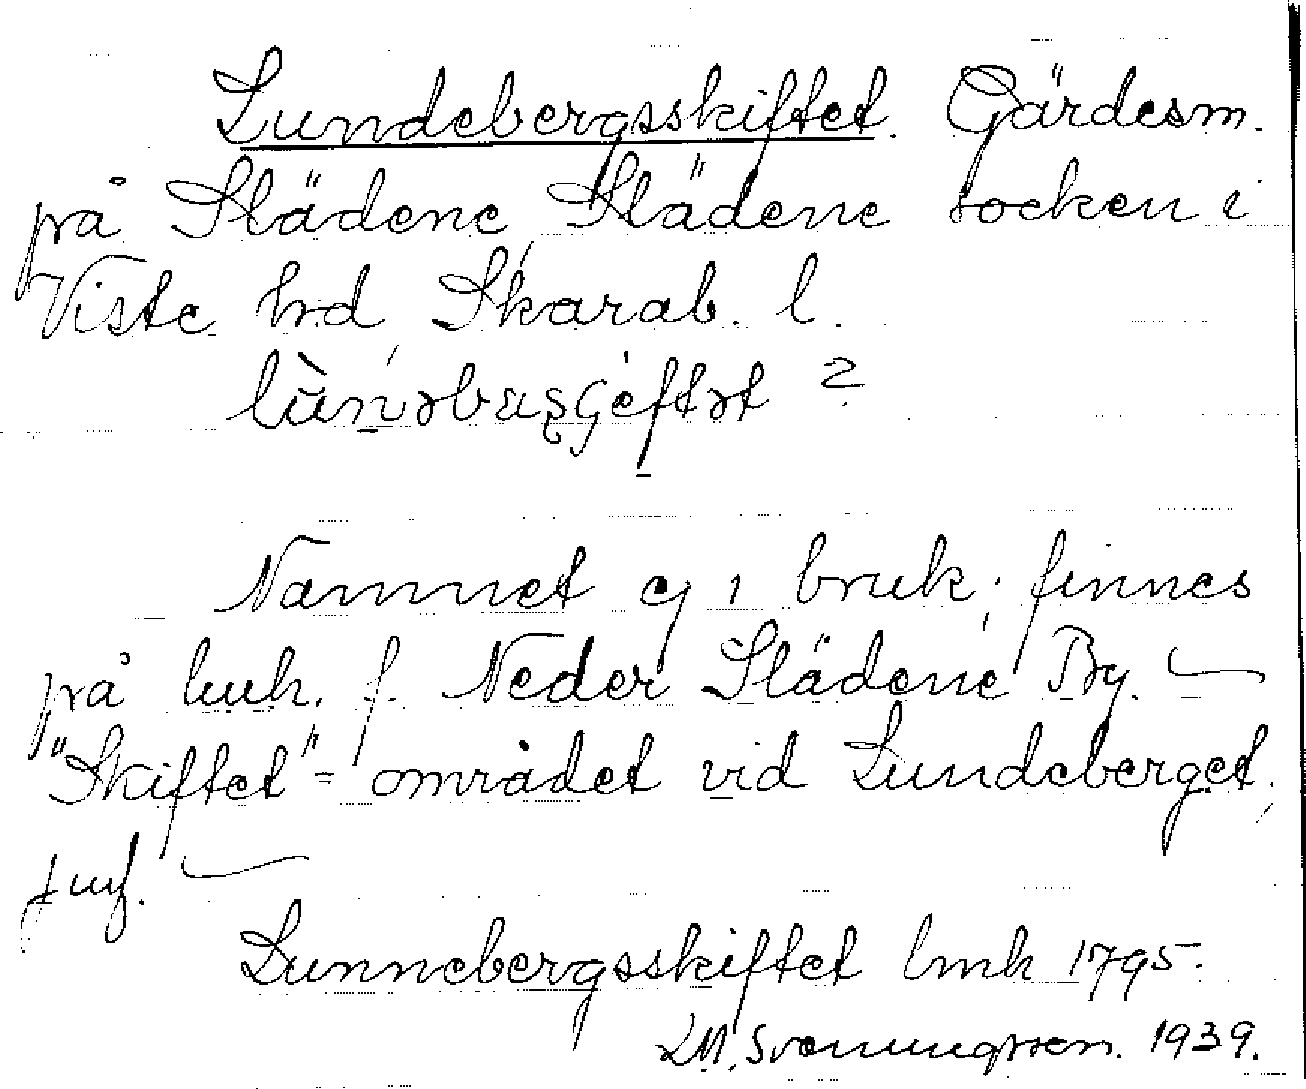 Lundebergsskiftet. Gärdesm.
på Slädene, Slädene socken i
Viste hd, Skarab. l.
Namnet ej i bruk; finnes
på lmk. f. Neder Slädene By. —
"Skiftet" = området vid Lundeberget,
jmf. —
Lunnebergsskiftet lmk 1795.
LM. Svanungsson. 1939.